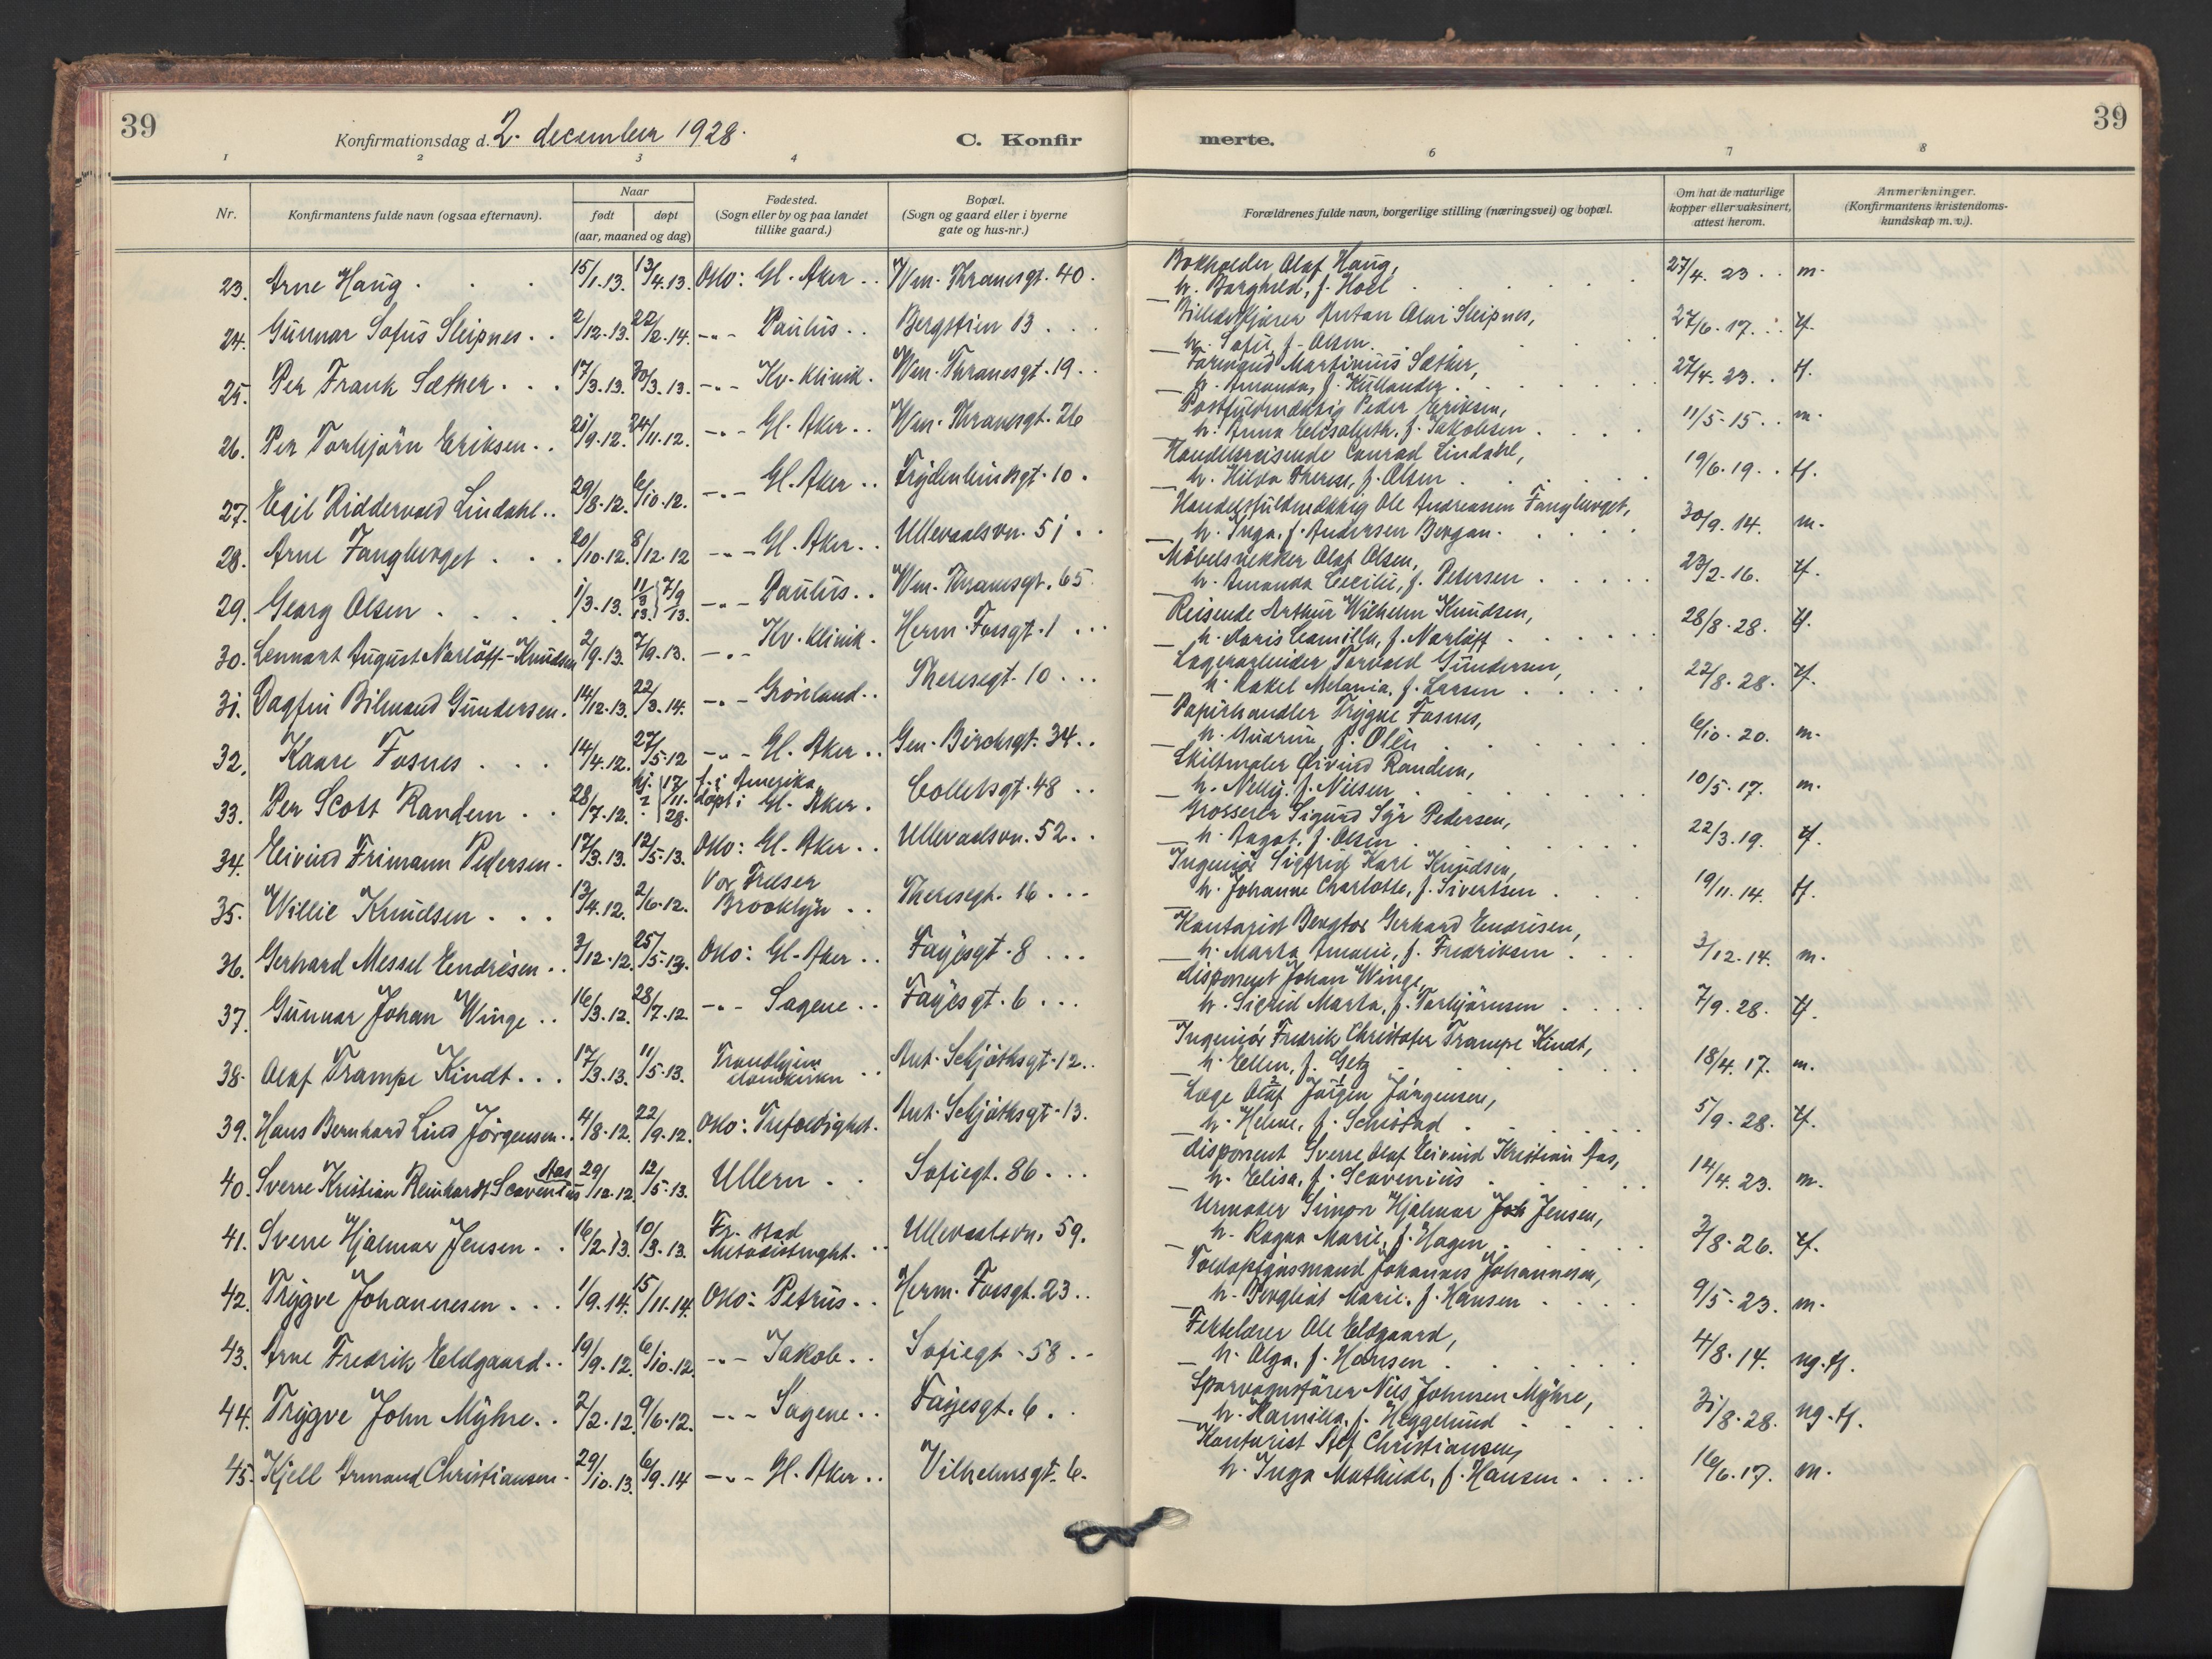 39
Konfirmationsdag d. 2. december 1928.
C. Konfir
merte.
39
1 2 3 4 6 7 8
Nr.
Konfirmantens fulde navn (ogsaa efternavn).
Naar
født døpt
(aar, maaned og dag)
Fødested.
(Sogn eller by og paa landet
tillike gaard.)
Bopæl.
(Sogn og gaard eller i byerne
gate og hus-nr.)
Forældrenes fulde navn, borgerlige stilling (næringsvei) og bopæl.
Om hat de naturlige
kopper eller vaksinert,
attest herom.
Anmerkninger.
(Konfirmantens kristendoms-
kundskap m. v.).
23. Arne Haug . . . 15/1.13. 13/4.13. Oslo: Gl. Aker . . Wm. Thranesgt. 40.
Bokholder Olaf Haug,
h. Borghild, f. Hoel 27/4. 23 . . m.
24. Gunnar Sofus Sleipnes . . 2/12.13. 22/2.14. -"- Paulus . . Bergstien 13 . . .
Billedskjærer Anton Olai Sleipnes,
h. Sofie, f. Olsen. 27/6. 17. . . tf.
25. Per Frank Sæther . . . 17/3.13. 30/3.13. -"- Kv. klinik. Wm. Thranesgt. 19 . .
Martinius Sæther,
h. Amanda, f. Kullander. 27/4. 23. . tf.
26. Per Torbjörn Eriksen . . 21/9.12. 24/11.12. -"- Gl. Aker . . Wm. Thranesgt. 26
Postfuldmæktig Peder Eriksen,
h. Anna Elisabeth, f. Jakobsen . 11/5-15 . . m.
27. Egil Riddervold Lindahl . . 29/8.12. 6/10.12. -"- Gl. Aker . . Frydenlundsgt. 10 .
Handelsreisende Conrad Lindahl,
h. Hilda Therese, f. Olsen . 19/6. 19. . tf.
28. Arne Fangberget . . . 20/10.12. 8/12.12 -"- Gl. Aker . . Ullevaalsvn. 51 . .
Handelsfuldmæktig Ole Andreassen Fangberget,
h. Inga, f. Andersen Bergan. 30/9. 14. m.
29. Georg Olsen . . . . 1/3.13. 11/3 13. } 7/9 13. -"- Paulus . . Wm. Thranesgt. 65.
Möbelsnekker Olaf Olsen,
h. Amanda Cecilie, f. Petersen . 23/2-16. tf.
30. Lennart August Norlöff-Knudsen 2/9.13. 7/9.13. -"- Kv. klinik. Herm. Fossgt. 1 . . .
Reisende Arthur Wilhelm Knudsen,
h. Doris Camilla, f. Norlöff . 28/8-28. tf.
31. Dagfin Bilmand Gundersen. 14/12.13. 22/3.14. -"- Grönland . . Theresegt. 10 . . .
Lagerarbeider Torvald Gundersen,
h. Rakel Melania, f. Larsen . 22/8. 28. tf.
32. Kaare Fosnes . . . 14/4.12. 27/5.12 -"- Gl. Aker . . Gen. Birchsgt. 34 . .
Papirhandler Trygve Fosnes,
h. Gudrun, f. Olén . 6/10. 20. m.
33. Per Scott Randem . . 28/7.12. hj. ? { 17/11. 28. f. i Amerika
döpt i Gl. Aker. Colletsgt. 48 . .
Skiltmaler Øivind Randem,
h. Nelly, f. Nilsen . 10/5-17. m.
34. Eivind Frimann Pedersen . 17/3.13. 12/5.13. Oslo: Gl. Aker . . Ullevaalsvn. 52 . .
Grosserer Sigurd Syr Pedersen,
h. Aagot, f. Olsen . 22/3.19. tf.
35. Willie Knudsen . . . 13/4.12. 2/6.12. Vor Frelser
Brooklyn . . Theresegt. 16 . . .
Ingeniør Sigfrid Karl Knudsen,
h. Johanne Charlotte, f. Sivertsen . 19/11. 14. tf.
36. Gerhard Messel Endresen . . 3/12.12. 25/5.13. Oslo: Gl. Aker . . Fayesgt. 8 . . .
Kontorist Bergtor Gerhard Endresen,
h. Marta Amalie, f. Fredriksen . 3/12.14. m.
37. Gunnar Johan Winge . . 16/3.12. 28/7.12 -"- Sagene . . Fayesgt. 6 . . .
disponent Johan Winge,
h. Sigrid Marta, f. Torbjörnsen . 7/9. 28. tf.
38. Olaf Trampe Kindt . . . 17/3.13. 11/5.13. Trondhjem
domkirken . . Ant. Schjöthsgt. 12 . .
Ingeniör Fredrik Christofer Trampe Kindt,
h. Ellen, f. Getz . 18/4. 17. m.
39. Hans Bernhard Lind Jörgensen . . 4/8.12. 22/9.12. Oslo: Trefoldighet. Ant. Schjöthsgt. 13.
Læge Olaf Jörgen Jörgensen,
h. Helene, f. Schiötad . 5/9. 28. tf.
40. Sverre Kristian Reinhardt Scavenius Aas 29/12.12. 12/5.13. Ullern . . Sofiegt. 86 . . .
disponent Sverre Olaf Eivind Kristian Aas,
h. Elisa, f. Scavenius . 14/4. 23. m.
41. Sverre Hjalmar Jensen . . 16/2.13. 10/3.13. Fr. stad
. . Ullevaalsvn. 59.
Urmaker Simon Hjalmar Jensen,
h. Ragna Marie, f. Hagen . 3/8-26. tf.
42. Trygve Johannesen . . . 1/9.14. 15/11.14. Oslo: Petrus . . Herm. Fossgt. 23 . .
Toldopsynsmand Johannes Johannesen,
h. Bergliot Marie, f. Hansen . 9/5-23. m.
43. Arne Fredrik Eldgaard . . 19/9.12. 6/10.12. -"- Jakob . . Sofiegt. 58 . .
Fektelærer Ole Eldgaard,
h. Olga, f. Hansen . 4/8. 14. ng. tf.
44. Trygve John Myhre . . 2/2.12. 9/6.12. -"- Sagene . . Fayesgt. 6 . .
Sporvognsförer Nils Johnsen Myhre,
h. Kamilla, f. Heggelund . 31/8.28. ng. tf.
45. Kjell Armand Christiansen . 29/10.13. 6/9.14 -"- Gl. Aker . . Vilhelmsgt. 6.
Kontorist Alf Christiansen,
h. Inga Mathilde, f. Hansen . 16/6. 17. m.